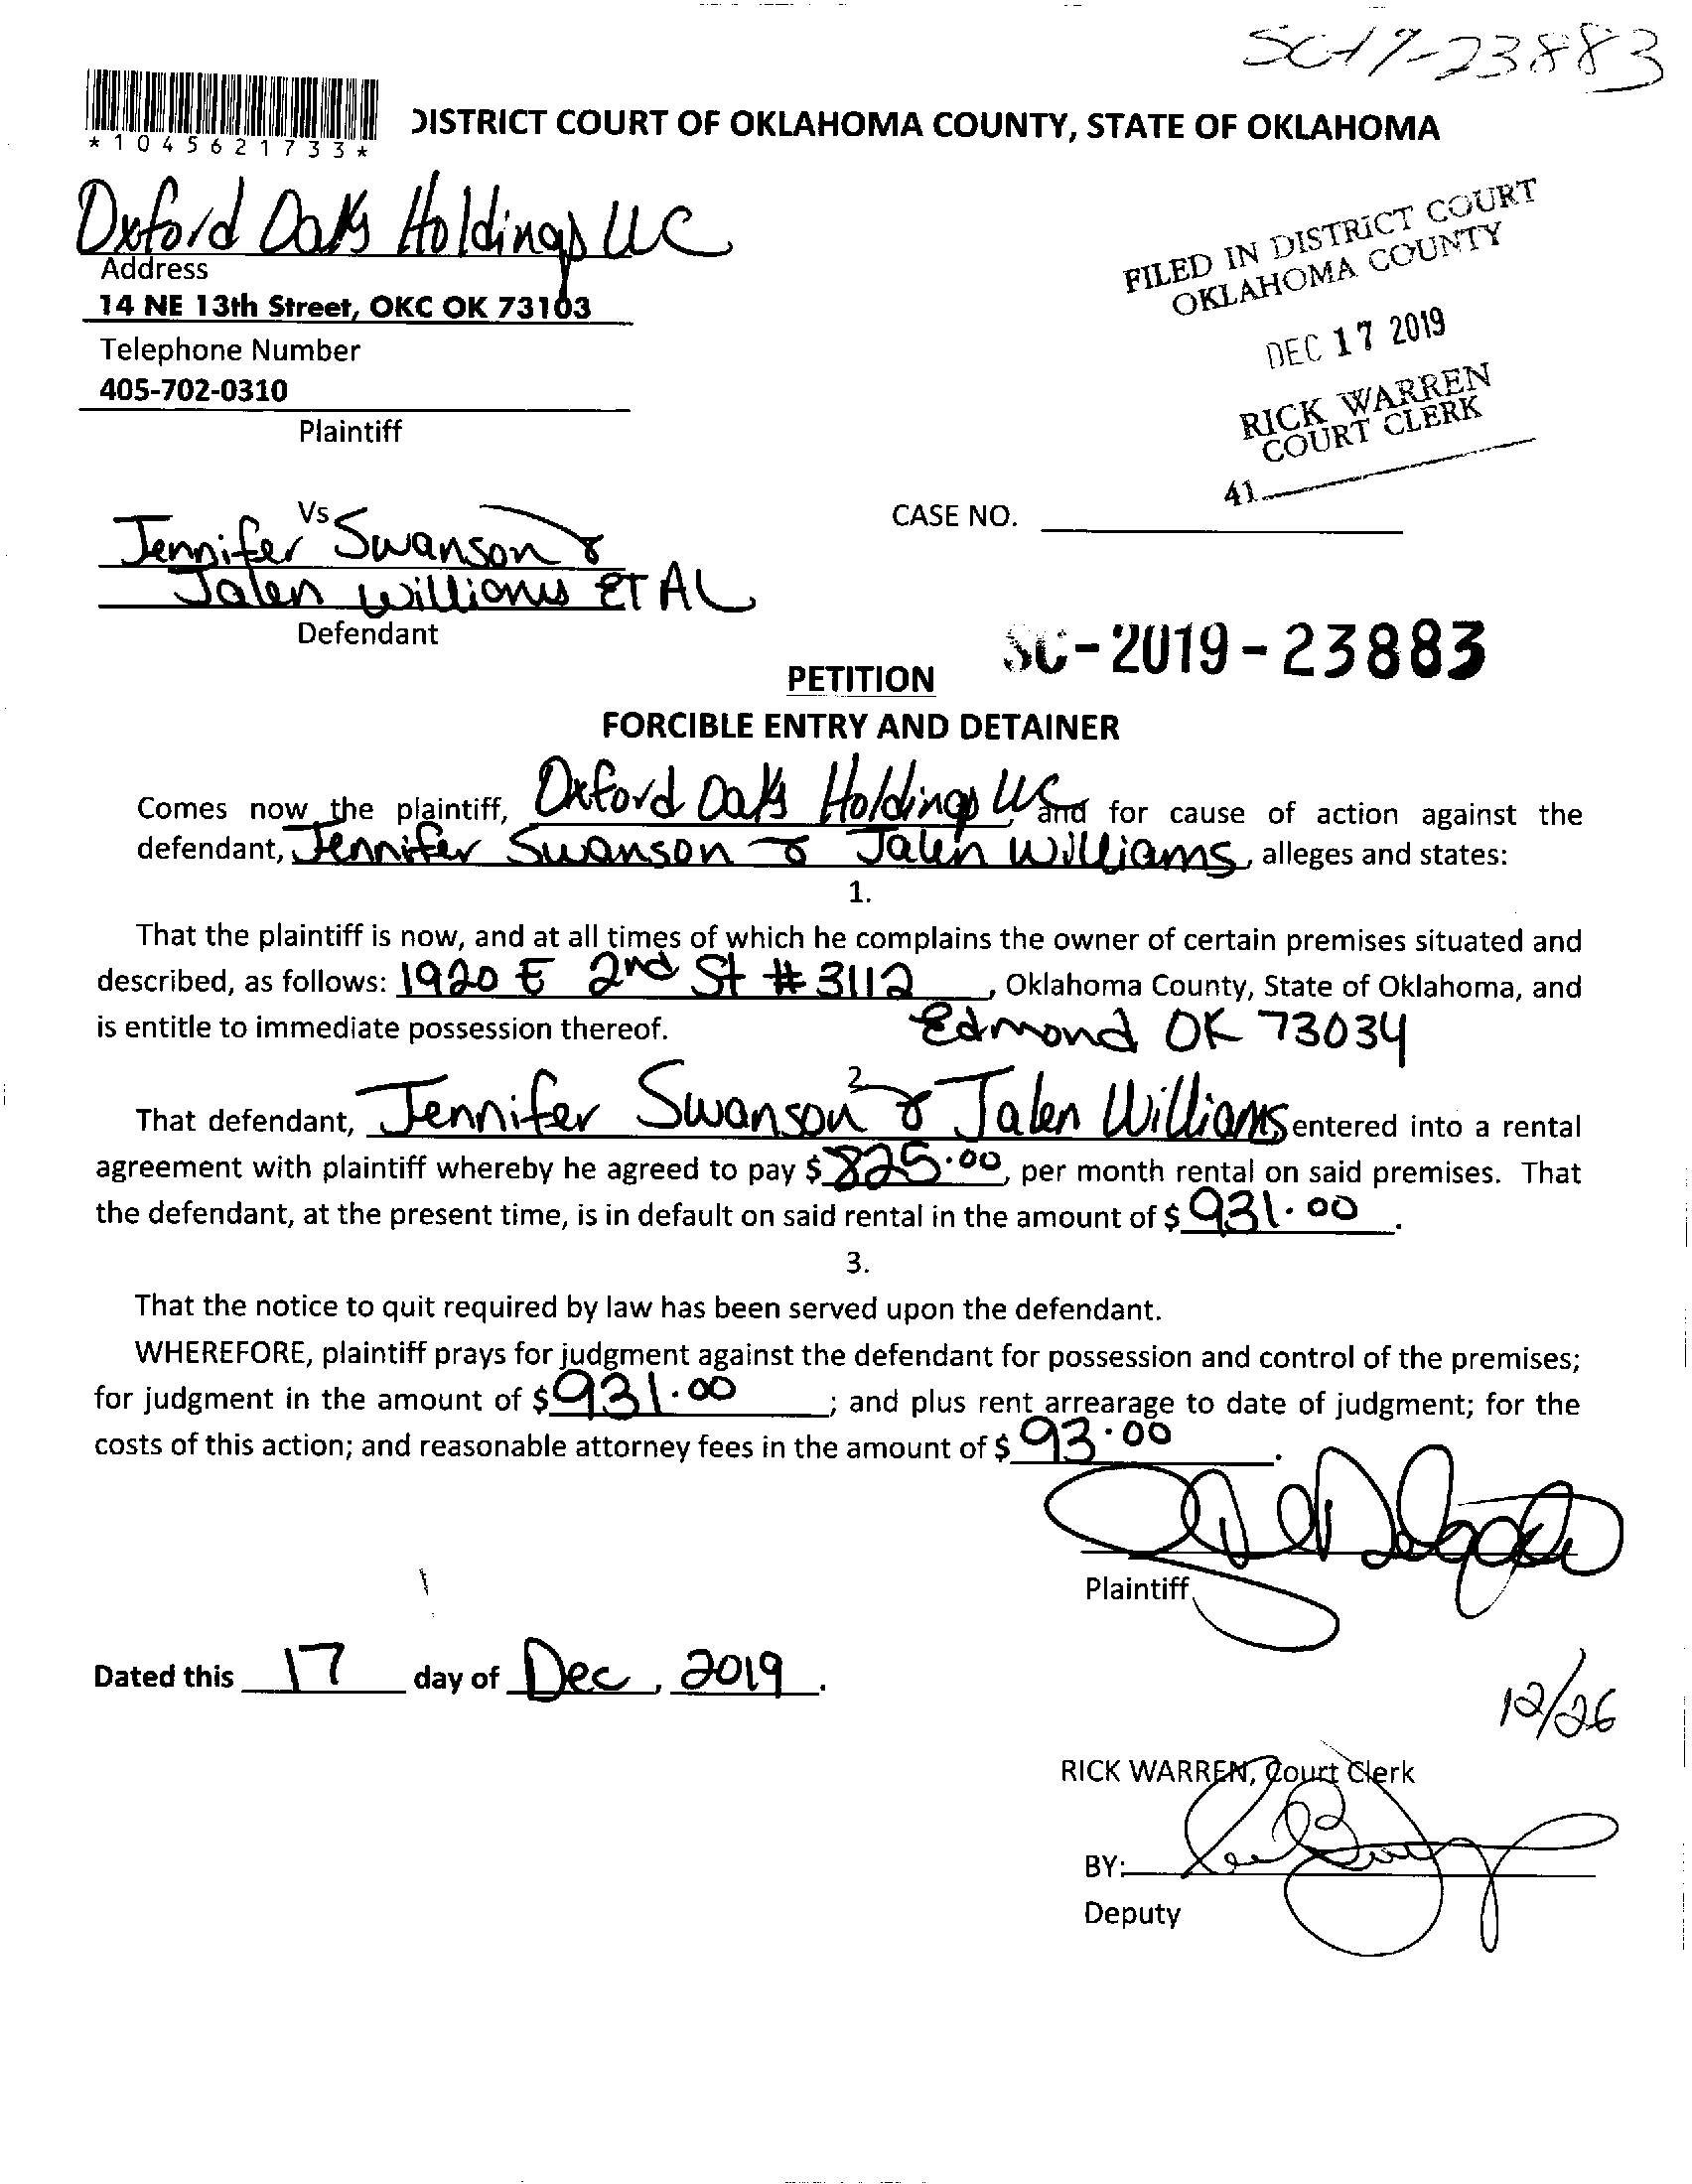 SC-19-23883
*1045621733*
DISTRICT COURT OF OKLAHOMA COUNTY, STATE OF OKLAHOMA
Oxford Oaks Holdings LLC
Address
14 NE 13th Street, OKC OK 73103
Telephone Number
405-702-0310
Plaintiff
FILED IN DISTRICT COURT
OKLAHOMA COUNTY
DEC 17 2019
RICK WARREN
COURT CLERK
41
Vs
Jennifer Swanson &
Jalen Williams ET AL
Defendant
CASE NO.
SC-2019-23883
PETITION
FORCIBLE ENTRY AND DETAINER
Comes now the plaintiff, Oxford Oaks Holdings LLC, and for cause of action against the
defendant, Jennifer Swanson & Jalen Williams, alleges and states:
1.
That the plaintiff is now, and at all times of which he complains the owner of certain premises situated and
described, as follows: 1920 E 2nd St # 3112, Oklahoma County, State of Oklahoma, and
is entitle to immediate possession thereof. Edmond OK 73034
2.
That defendant, Jennifer Swanson & Jalen Williams, entered into a rental
agreement with plaintiff whereby he agreed to pay $ 825.00, per month rental on said premises. That
the defendant, at the present time, is in default on said rental in the amount of $ 931.00.
3.
That the notice to quit required by law has been served upon the defendant.
WHEREFORE, plaintiff prays for judgment against the defendant for possession and control of the premises;
for judgment in the amount of $ 931.00; and plus rent arrearage to date of judgment; for the
costs of this action; and reasonable attorney fees in the amount of $ 93.00.
Plaintiff
Dated this 17 day of Dec, 2019.
12/26
RICK WARREN, Court Clerk
BY:
Deputy